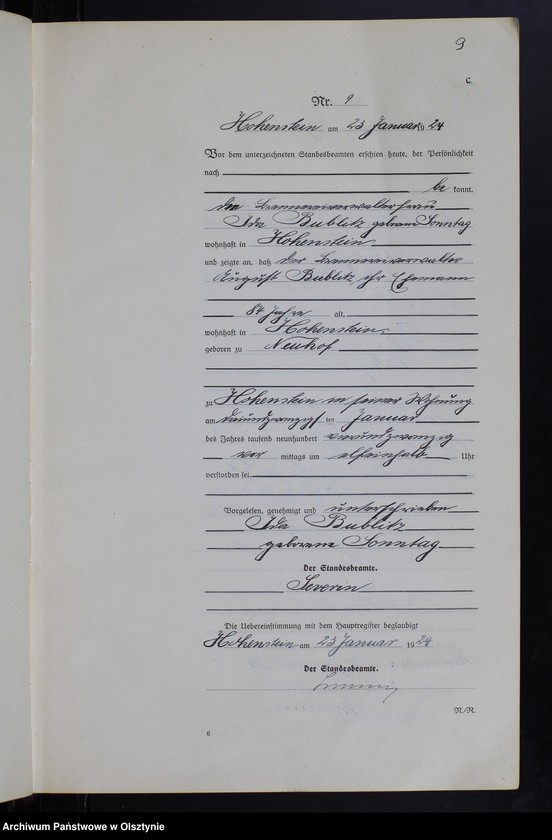 9
C.
Nr. 9
Hohenstein am 23 Januar 1924
Vor dem unterzeichneten Standesbeamten erschien heute, der Persönlichkeit
nach
be kannt,
die frau
Ida Bublitz geborene Sonntag
wohnhaft in Hohenstein
und zeigte an, daß der
August Bublitz, ihr Ehemann
84 Jahre alt,
wohnhaft in Hohenstein,
geboren zu Neuhof
zu Hohenstein in seiner Wohnung
am dreiundzwanzigsten Januar
des Jahres tausend neunhundert vierundzwanzig
vor mittags um elfeinhalb Uhr
verstorben sei
Vorgelesen, genehmigt und unterschrieben
Ida Bublitz
geborene Sonntag
Der Standesbeamte.
Severin
Die Uebereinstimmung mit dem Hauptregister beglaubigt
Hohenstein am 23 Januar 1924
Der Standesbeamte.
N.-R.
6
Archiwum Państwowe w Olsztynie